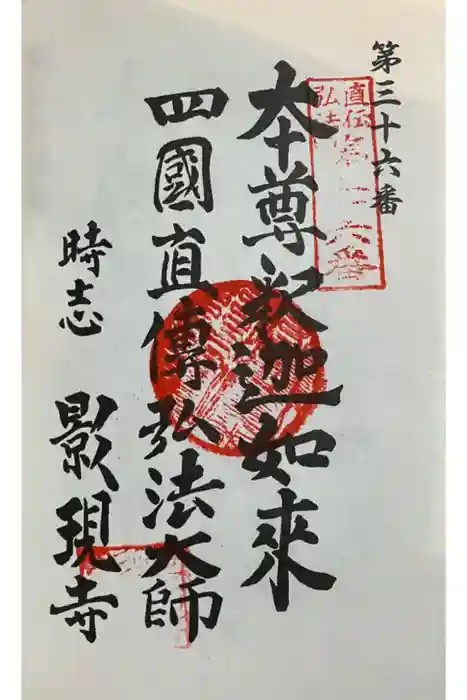 第三十六番
直伝
弘法
第三十六番
本尊釈迦如來
四國直傳弘法大師
時志
影現寺